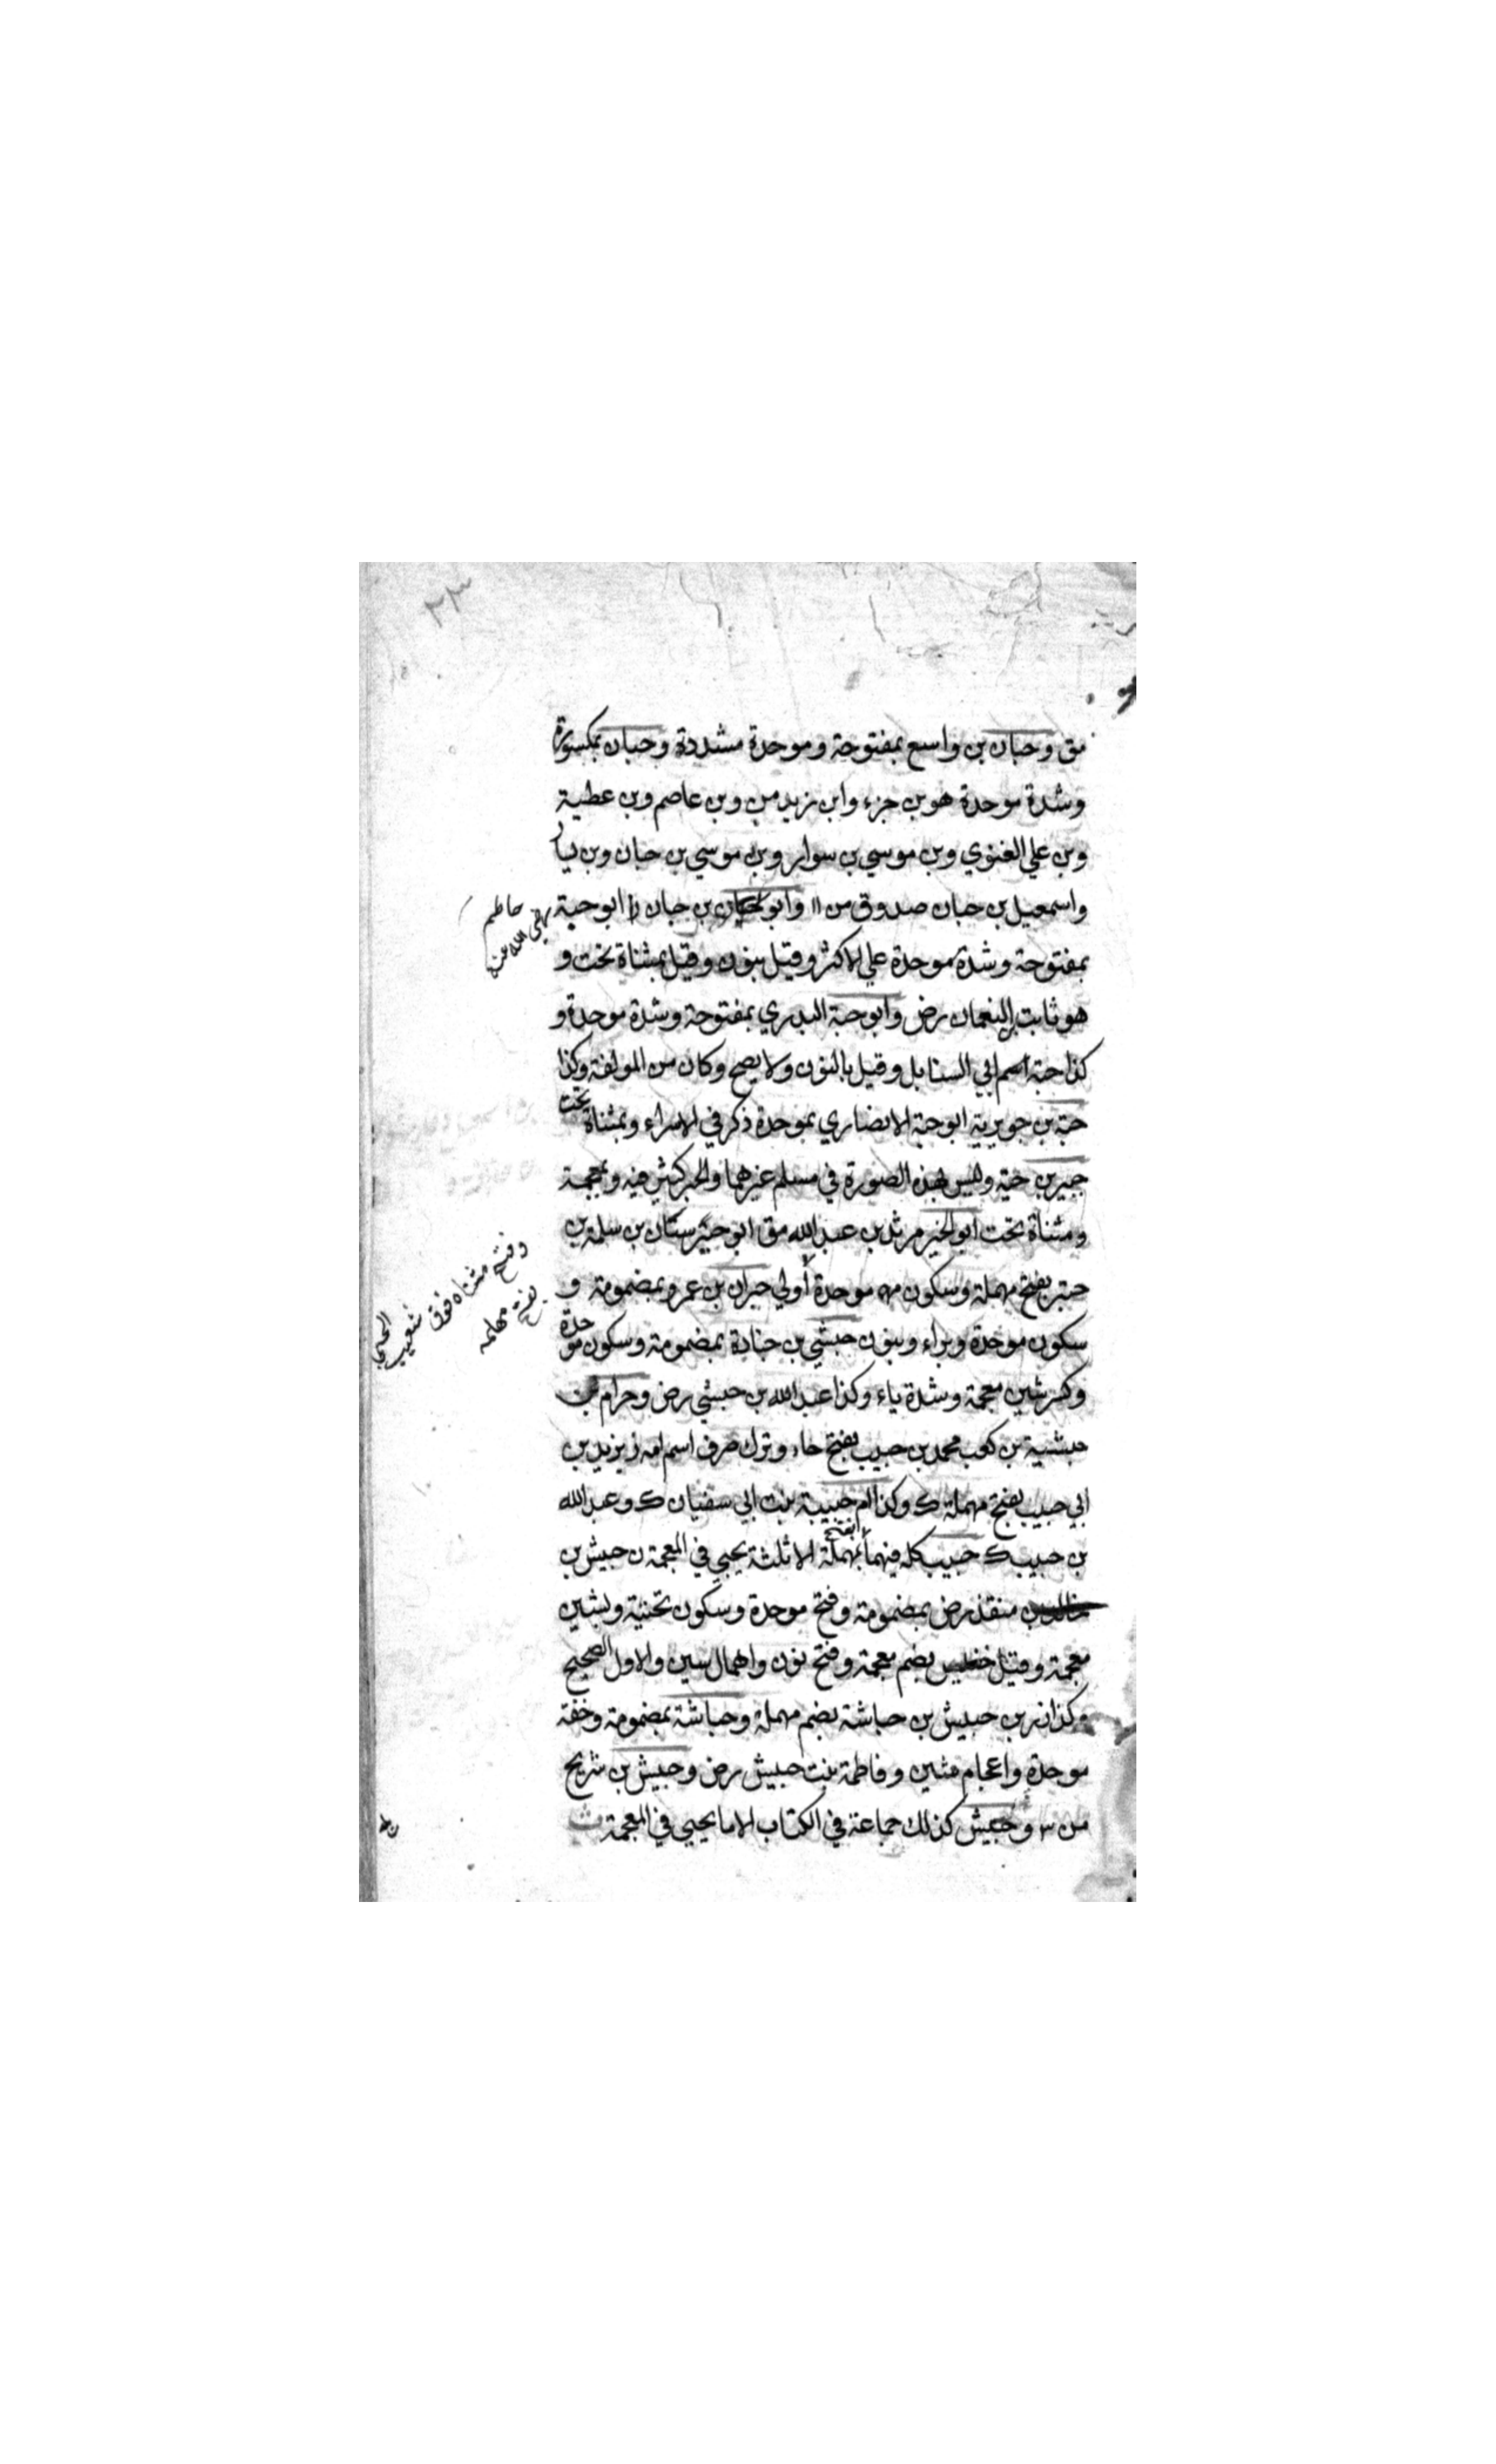 ٢٣
مق وحبان بن واسع بمفتوحة وموحدة مشددة وحبان بمكسورة
وشدة موحدة هو بن جزء وابن زيد من وبن عاصم وبن عطية
وبن علي الغنوي وبن موسي بن سوار وبن موسي بن حبان وبن يسار
واسمعيل بن حبان صدوق من ١١ وابو بن حبان ابو حبة
بمفتوحة وشدة موحدة علي الاكثر وقيل بنون وقيل بمثناة تحت و
هو ثابت بن النعمان رض وابو حبة البدري بمفتوحة وشدة موحدة و
كذا حبة اسم ابي السنابل وقيل بالنون ولا يصح وكان من المولفة وكذا
حبة بن جويرية ابو حبة الانصاري بموحدة ذكر في الاسراء وبمثناة تحت
جبير بن حية وليس بهذه الصورة في مسلم غيرهما والحبر كثير فيه وبمعجمة
ومثناة تحت ابو الخير مرثد بن عبد الله مق ابو حبتر ستان بن سلمة بن
حبتر بفتح مهملة وسكون موحدة أولي حبران بن عمرو بمضمومة و
سكون موحدة وبراء وبنون حبشي بن جنادة بمضمومة وسكون موحدة
وكسر شين معجمة وشدة ياء وكذا عبد الله بن حبشي رض وحرام بن
حبشية بن كعب محمد بن حبيب بفتح حاء وترك صرف اسم امه ز يزيد بن
ابي حبيب بفتح مهملة ك وكذا ام حبيبة بنت ابي سفيان ك وعبد الله
بن حبيب ك حبيب كله فيهما بفتح مهملة الا ثلثة يجيي في المعجمة ن حبيش بن
خالد بن منقذ رض بمضمومة وفتح موحدة وسكون تحتية وبشين
معجمة وقيل خنيس بضم معجمة وفتح نون واهمال سين والاول الصحيح
وكذا زر بن حبيش بن حباشة بضم مهملة وحباشة بمضمومة وخفة
موحدة واعجام شين وفاطمة بنت حبيش رض وحبيش بن شريح
من ٣ وحبيش كذلك جماعة في الكتاب الا ما يجيي في المعجمة
حاطم
رضي الله عنه
وفتح مثناة فوق
بفتح مهملة
شعيب